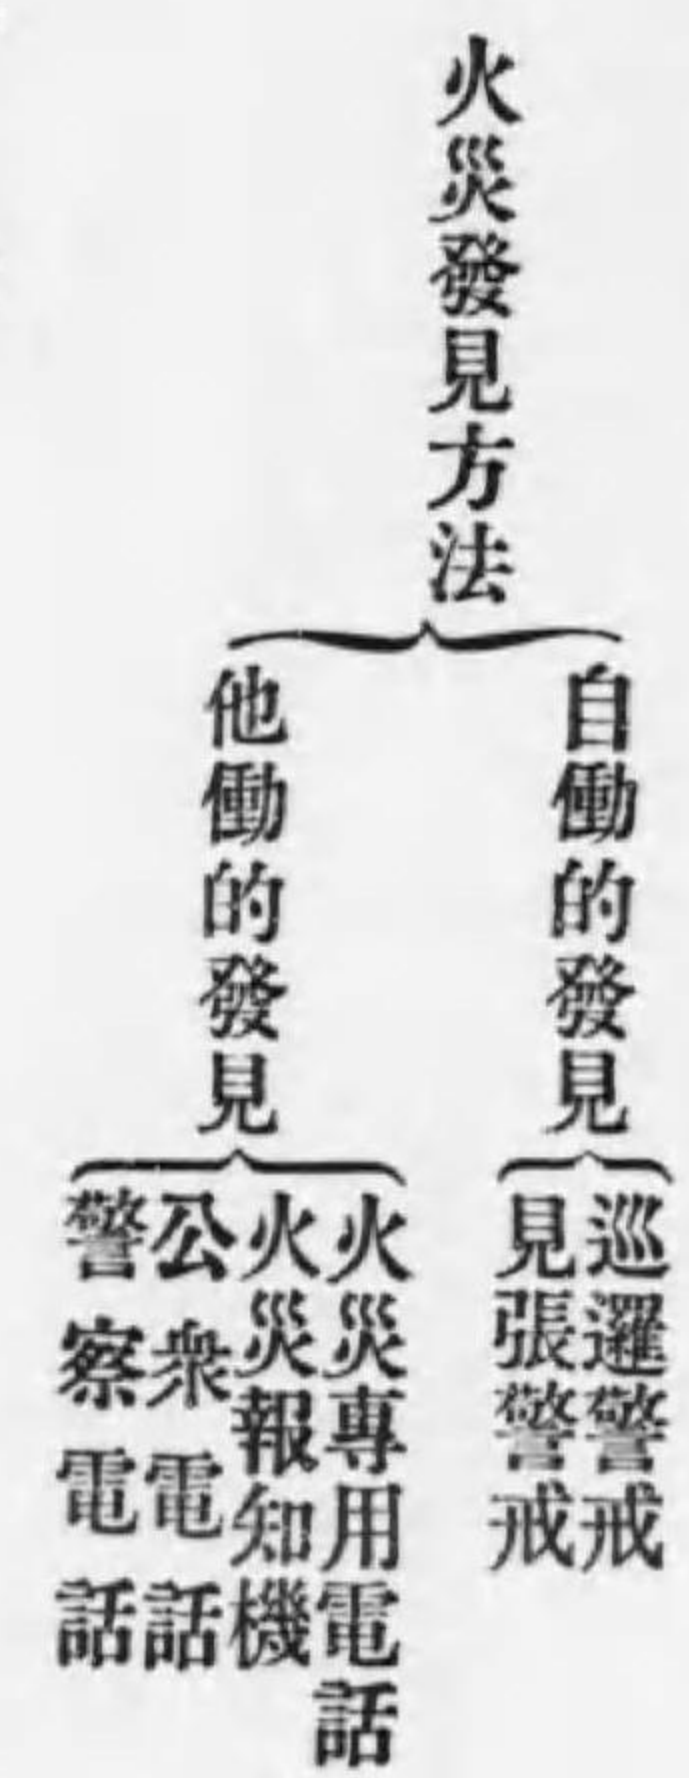 火災發見方法
自働的發見
巡邏警戒
見張警戒
他働的發見
火災專用電話
火災報知機
公衆電話
警察電話